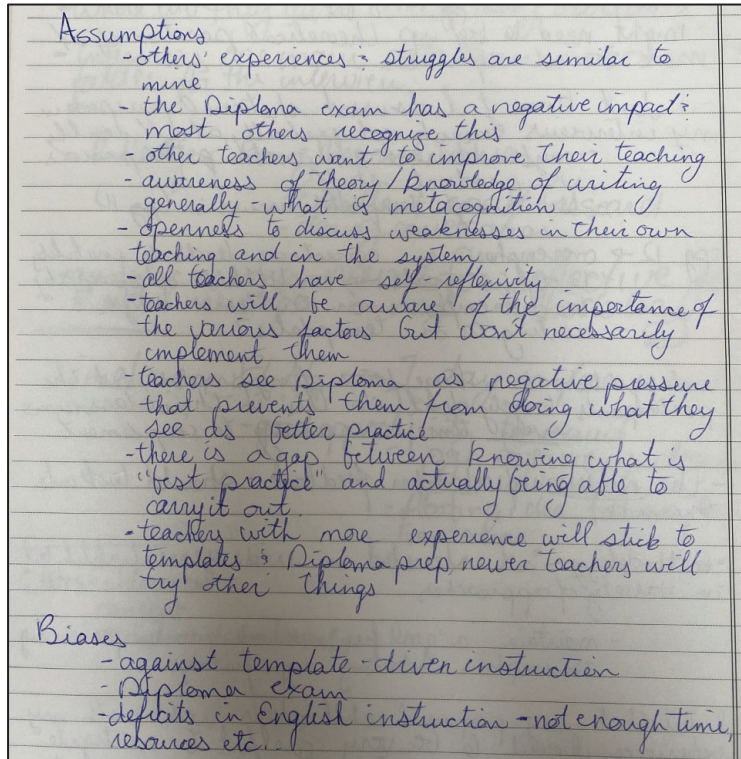 Assumptions
- others' experiences & struggles are similar to
mine
- the Diploma exam has a negative impact &
most others recognize this
- other teachers want to improve their teaching
- awareness of theory/knowledge of writing
generally - what is metacognition
- openness to discuss weaknesses in their own
teaching and in the system
- all teachers have self-reflexivity
- teachers will be aware of the importance of
the various factors but won't necessarily
implement them
- teachers see Diploma as negative pressure
that prevents them from doing what they
see as better practice
- there is a gap between knowing what is
"best practice" and actually being able to
carry it out.
- teachers with more experience will stick to
templates & Diploma prep, newer teachers will
try other things
Biases
- against template-diven instruction
- Diploma exam
- deficits in English instruction - not enough time,
resources etc.